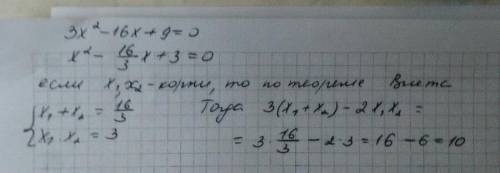 3x² - 16x + 9 = 0
x² - 16/3 x + 3 = 0
если x₁, x₂ - корни, то по теореме Виета
{ x₁ + x₂ = 16/3 Тогда 3(x₁ + x₂) - 2x₁x₂ =
x₁ · x₂ = 3 = 3 · 16/3 - 2 · 3 = 16 - 6 = 10